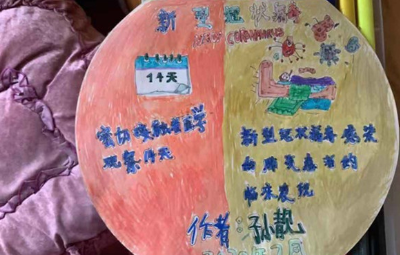 新型冠状病毒
14天
密切接触者医学
观察14天
新型冠状病毒感染
的肺炎患者的
临床表现
作者:孙靓
2020年2月